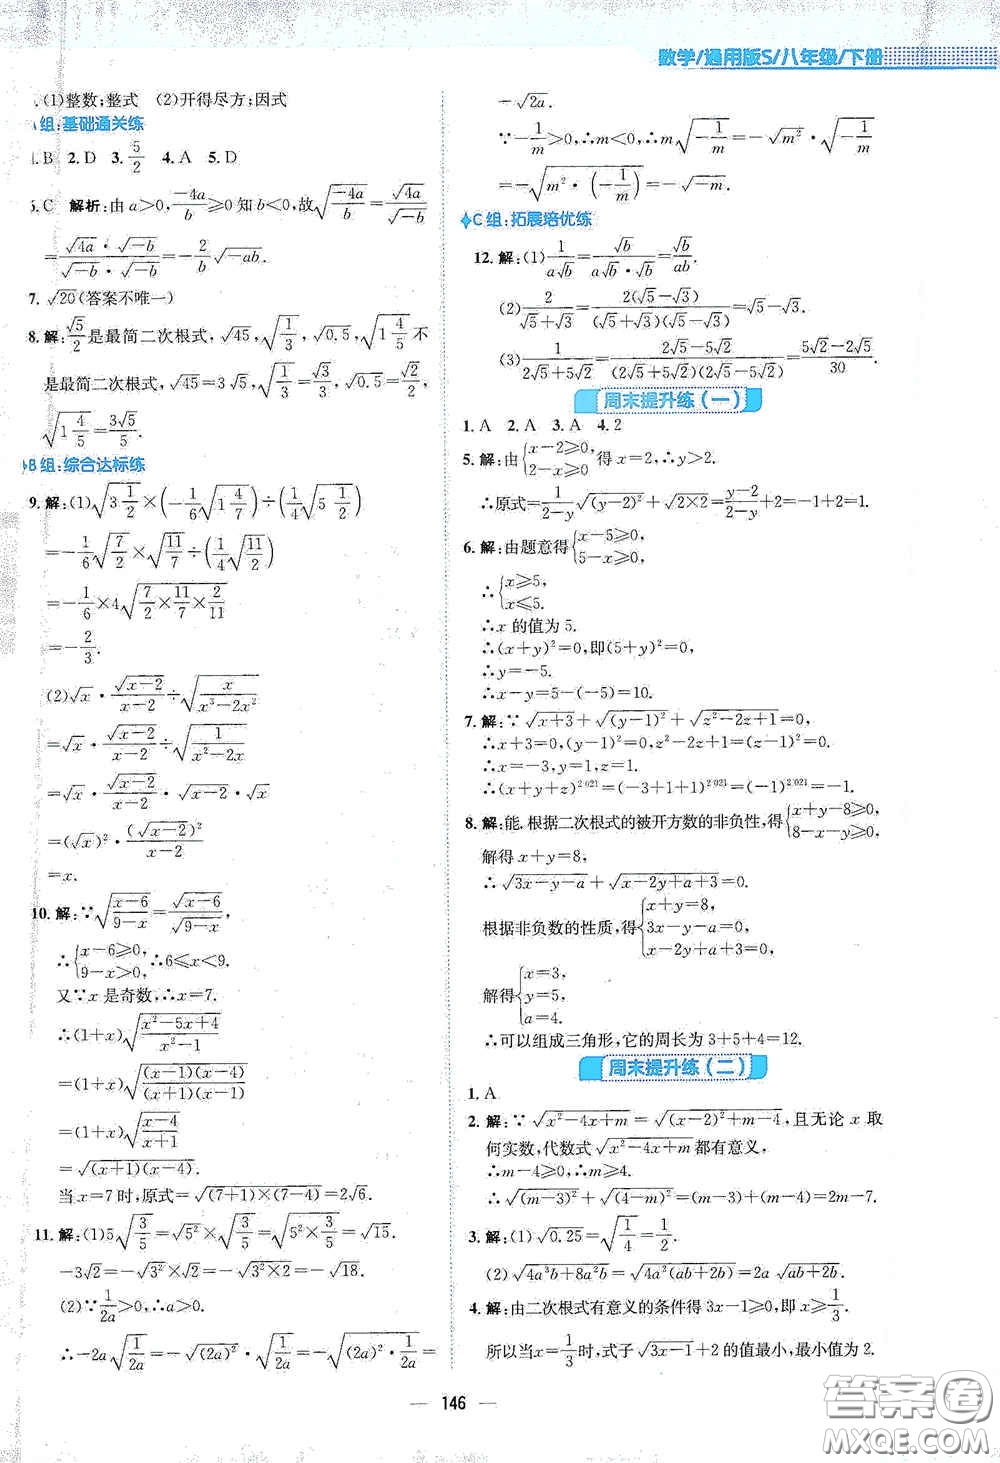 数学/通用版S/八年级/下册
.(1)整数;整式 (2)开得尽方;因式
组:基础通关练
.B 2. D 3. 5/2 4. A 5. D
. C 解析:由a>0,-4a/b≥0知b<0,故√(-4a/b)=√(4a)/√(-b)
=(√(4a)·√(-b))/(√(-b)·√(-b))=-(2/b)√(-ab).
7. √20(答案不唯一)
8. 解:√5/2是最简二次根式,√45,√(1/3),√0.5,√(1 4/5)不
是最简二次根式,√45=3√5,√(1/3)=√3/3,√0.5=√2/2,
√(1 4/5)=3√5/5.
B组:综合达标练
9. 解:(1)√(3 1/2)×(-1/6 √(1 4/7))÷(1/4 √(5 1/2))
=-1/6 √(7/2)×√(11/7)÷(1/4 √(11/2))
=-1/6×4√(7/2×11/7×2/11)
=-2/3.
(2)√x·√(x-2)/(x-2)÷√(x/(x³-2x²))
=√x·√(x-2)/(x-2)÷√(1/(x²-2x))
=√x·√(x-2)/(x-2)·√(x-2)·√x
=(√x)²·(√(x-2))²/(x-2)
=x.
10. 解:∵√((x-6)/(9-x))=√(x-6)/√(9-x),
∴{x-6≥0, 9-x>0,∴6≤x<9.
又∵x是奇数,∴x=7.
∴(1+x)√((x²-5x+4)/(x²-1))
=(1+x)√((x-1)(x-4)/((x+1)(x-1)))
=(1+x)√((x-4)/(x+1))
=√((x+1)(x-4)).
当x=7时,原式=√((7+1)×(7-4))=2√6.
11. 解:(1)5√(3/5)=√(5²)×√(3/5)=√(5²×3/5)=√15.
-3√2=-√(3²)×√2=-√(3²×2)=-√18.
(2)∵1/(2a)>0,∴a>0.
∴-2a√(1/(2a))=-√((2a)²)·√(1/(2a))=-√((2a)²·1/(2a))=
-√(2a).
∵-1/m>0,∴m<0,∴m√(-1/m)=-√(m²)·√(-1/m)
=-√(m²·(-1/m))=-√(-m).
C组:拓展培优练
12. 解:(1)1/(a√b)=√b/(a√b·√b)=√b/(ab).
(2)2/(√5+√3)=2(√5-√3)/((√5+√3)(√5-√3))=√5-√3.
(3)1/(2√5+5√2)=(2√5-5√2)/((2√5+5√2)(2√5-5√2))=(5√2-2√5)/30.
周末提升练(一)
1. A 2. A 3. A 4. 2
5. 解:由{x-2≥0, 2-x≥0得x=2,∴y>2.
∴原式=1/(2-y)√((y-2)²)+√(2×2)=(y-2)/(2-y)+2=-1+2=1.
6. 解:由题意得{x-5≥0, 5-x≥0,
∴{x≥5, x≤5.
∴x的值为5.
∴(x+y)²=0,即(5+y)²=0,
∴y=-5.
∴x-y=5-(-5)=10.
7. 解:∵√(x+3)+√((y-1)²)+√(z²-2z+1)=0,
∴x+3=0,(y-1)²=0,z²-2z+1=(z-1)²=0.
∴x=-3,y=1,z=1.
∴(x+y+z)²⁰²¹=(-3+1+1)²⁰²¹=(-1)²⁰²¹=-1.
8. 解:能.根据二次根式的被开方数的非负性,得{x+y-8≥0, 8-x-y≥0,
解得x+y=8,
∴√(3x-y-a)+√(x-2y+a+3)=0.
根据非负数的性质,得{x+y=8, 3x-y-a=0, x-2y+a+3=0,
解得{x=3, y=5, a=4.
∴可以组成三角形,它的周长为3+5+4=12.
周末提升练(二)
1. A
2. 解:∵√(x²-4x+m)=√((x-2)²+m-4),且无论x取
何实数,代数式√(x²-4x+m)都有意义,
∴m-4≥0,∴m≥4.
∴√((m-3)²)+√((4-m)²)=(m-3)+(m-4)=2m-7.
3. 解:(1)√0.25=√(1/4)=1/2.
(2)√(4a³b+8a²b)=√(4a²(ab+2b))=2a√(ab+2b).
4. 解:由二次根式有意义的条件得3x-1≥0,即x≥1/3.
所以当x=1/3时,式子√(3x-1)+2的值最小,最小值为2.
— 146 —
答案圈
MXQE.COM